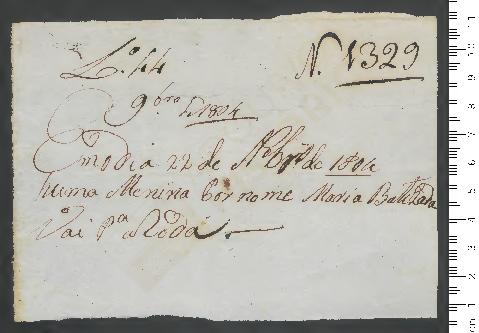 L.º 44
N. 1329
9bro D 1804
Em o dia 22 de Nbro de 1804
huma Menina por nome Maria Batizada
Vai pª a Roda